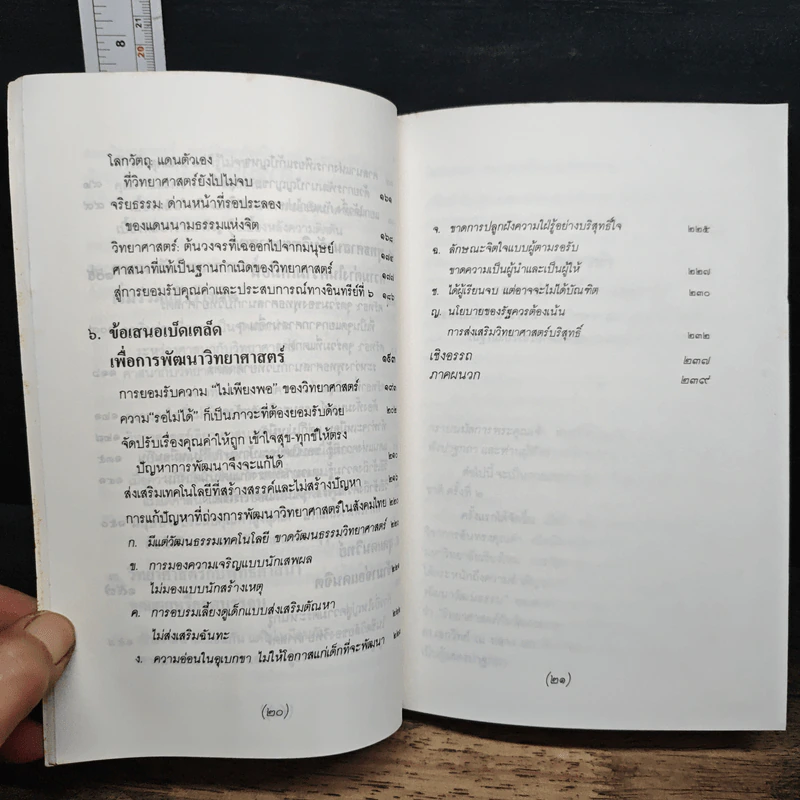 8
20
21
โลกวัตถุ แดนตัวเอง
ที่วิทยาศาสตร์ยังไปไม่จบ ๑๖๑
จริยธรรม: ด่านหน้าที่รอประลอง
ของแดนนามธรรมแห่งจิต ๑๖๘
วิทยาศาสตร์: ต้นวงจรที่เฉออกไปจากมนุษย์ ๑๗๔
ศาสนาที่แท้เป็นฐานกำเนิดของวิทยาศาสตร์
สู่การยอมรับคุณค่าและประสบการณ์ทางอินทรีย์ที่ ๖ ๑๘๖
๖. ข้อเสนอเบ็ดเตล็ด
เพื่อการพัฒนาวิทยาศาสตร์ ๑๙๓
การยอมรับความ “ไม่เพียงพอ” ของวิทยาศาสตร์
ความ“รอไม่ได้” ก็เป็นภาวะที่ต้องยอมรับด้วย
จัดปรับเรื่องคุณค่าให้ถูก เข้าใจสุข-ทุกข์ให้ตรง
ปัญหาการพัฒนาจึงจะแก้ได้
ส่งเสริมเทคโนโลยีที่สร้างสรรค์และไม่สร้างปัญหา
การแก้ปัญหาที่ถ่วงการพัฒนาวิทยาศาสตร์ในสังคมไทย
ก. มีแต่วัฒนธรรมเทคโนโลยี ขาดวัฒนธรรมวิทยาศาสตร์
ข. การมองความเจริญแบบนักเสพผล
ไม่มองแบบนักสร้างเหตุ
ค. การอบรมเลี้ยงดูเด็กแบบส่งเสริมตัณหา
ไม่ส่งเสริมฉันทะ
ง. ความอ่อนในอุเบกขา ไม่ให้โอกาสแก่เด็กที่จะพัฒนา
(๒๐)
จ. ขาดการปลูกฝังความใฝ่รู้อย่างบริสุทธิ์ใจ ๒๒๕
ฉ. ลักษณะจิตใจแบบผู้ตามรอรับ
ขาดความเป็นผู้นำและเป็นผู้ให้ ๒๒๗
ช. ได้ผู้เรียนจบ แต่อาจจะไม่ได้บัณฑิต ๒๓๐
ญ. นโยบายของรัฐควรต้องเน้น
การส่งเสริมวิทยาศาสตร์บริสุทธิ์ ๒๓๒
เชิงอรรถ ๒๓๗
ภาคผนวก ๒๓๙
(๒๑)